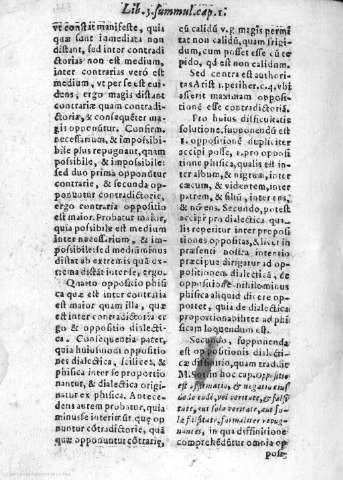 Lib. 3. summul. cap. 1.
vt constat manifeste, quia
quæ sunt immediata non
distant, sed inter contradi
ctorias non est medium,
inter contrarias verò est
medium, vt per se est eui
dens, ergo magis distant
contrariæ quam contradi
ctoriæ, & consequẽter ma
gis opponũtur. Confirm.
necessarium, & impossibi-
bile plus repugnant, quam
possibile, & impossibile:
sed duo prima opponũtur
contrarie, & secunda op-
ponuntur contradictorie,
ergo contraria oppositio
est maior. Probatur maior,
quia possibile est medium
inter necessarium, & im-
possibile: sed medium minus
distat ab extremis quã ex-
trema distãt inter se, ergo.
Quanto oppositio phisi
ca quæ est inter contraria
est maior quam illa, quæ
est inter contradictoria er
go & oppositio dialecti-
ca. Consequentia patet,
quia huiusmodi oppositio
nes dialectica, scilicet, &
phisica inter se proportio
nantur, & dialectica origi
natur ex phisica. Antece-
dens autem probatur, quia
minus esse interimũt quę op
ponũtur cõtradictorie, quã
quæ opponuntur cõtrariè,
cũ calidũ v.g. magis permit
tat non calidũ, quam frigi
dum, cum posset esse cũ te
pido, qđ est non calidum.
Sed contra est authori-
tas Arist. 1. periher. c. 4. vbi
asserit maximam opposi-
tionẽ esse contradictoriã.
Pro huius difficultatis
solutione, supponendũ est
1. oppositionẽ dupliciter
accipi posse, 1. pro opposi
tione phisica, qualis est in
ter album, & nigrum, inter
cæcum, & videntem, inter
patrem, & filiũ, inter ens,
& nõ ens. Secundo, potest
accipi pro dialectica qua-
lis reperitur inter proposi
tiones oppositas, & licet in
præsenti nostra intentio
præcipue dirigatur ad op-
positionem dialecticã, de
oppositione nihilominus
phisica aliquid dicere opor
tet, quia de dialectica
proportionabiliter ad phi
sicam loquendum est.
Secundo, supponenda
est oppositionis dialecti-
cæ diffinitio, quam tradit
M. Sotus hoc cap. oppositio
est affirmatio, & negatio eius
dẽ de eodẽ, vel veritate, & falsi
tate, aut sola veritate, aut so-
la falsitate, formaliter repug-
nantes: in qua diffinitione
comprehẽdẽtur omnia op
posi-